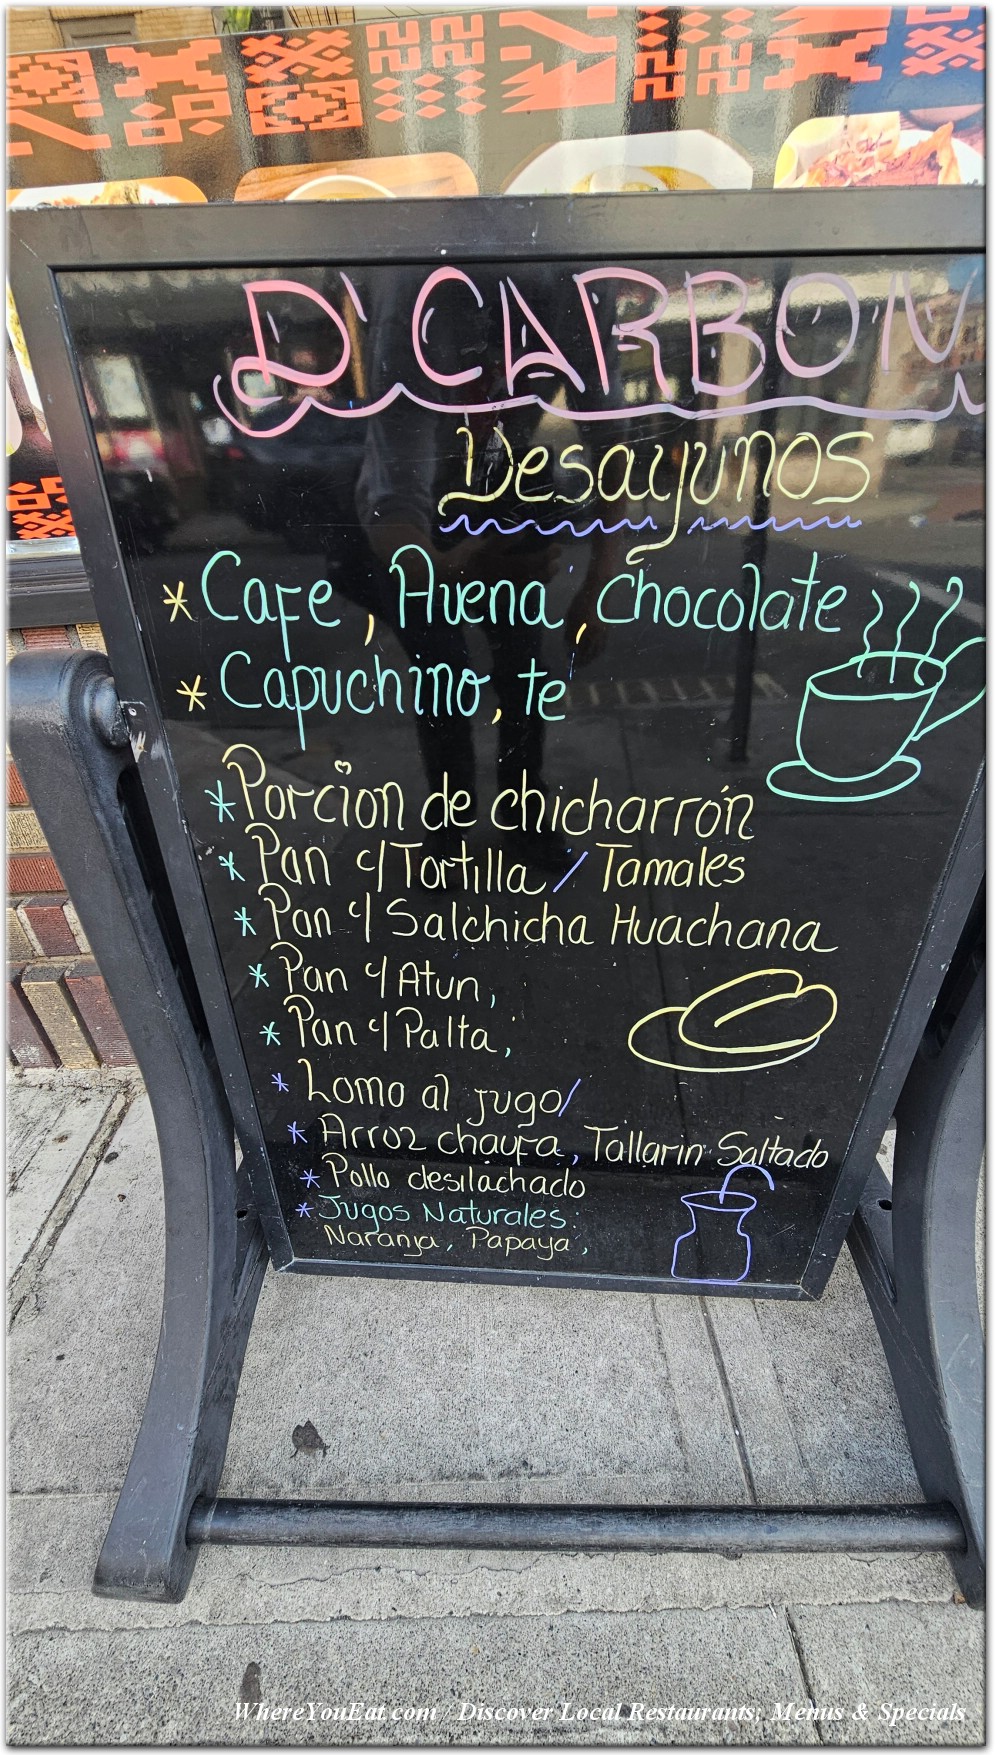 D'CARBON
Desayunos
* Cafe, Avena, Chocolate
* Capuchino, te
* Porcion de chicharrón
* Pan c/Tortilla / Tamales
* Pan c/ Salchicha Huachana
* Pan c/Atun,
* Pan c/Palta,
* Lomo al jugo/
* Arroz chaufa, Tallarin Saltado
* Pollo desilachado
* Jugos Naturales:
Naranja, Papaya,
WhereYouEat.com Discover Local Restaurants, Menus & Specials